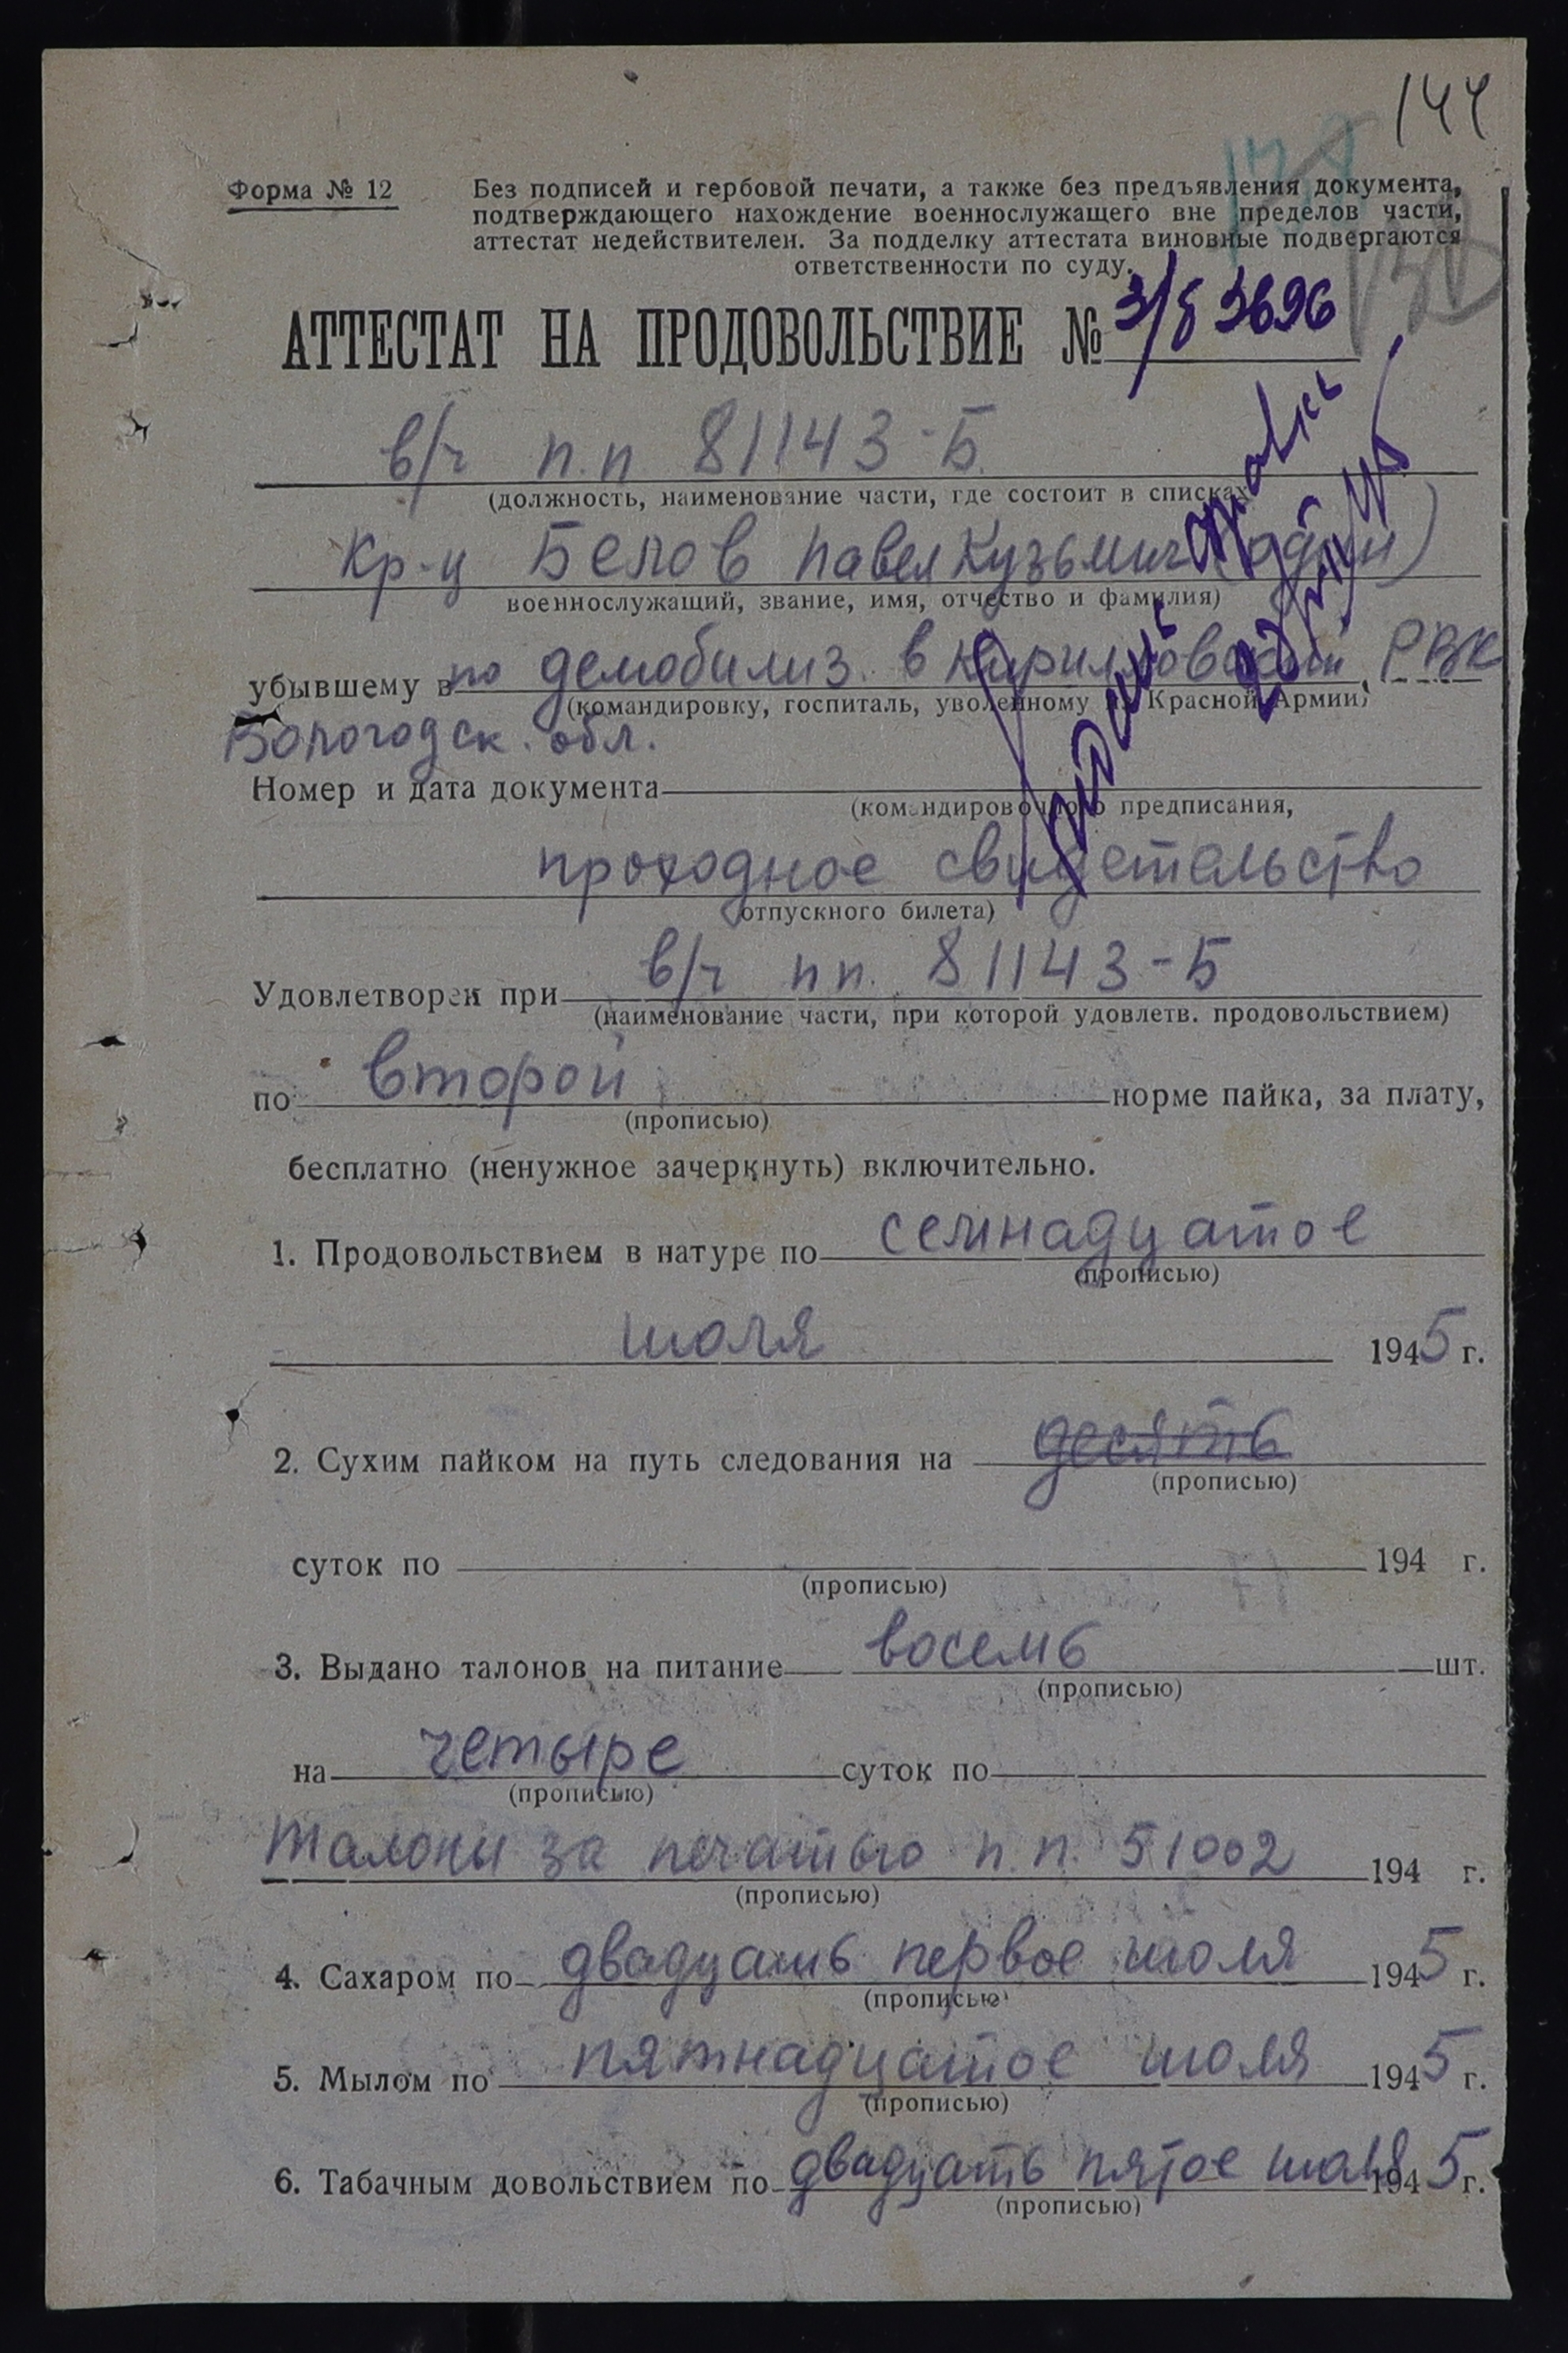 144
Форма № 12
Без подписей и гербовой печати, а также без предъявления документа,
подтверждающего нахождение военнослужащего вне пределов части,
аттестат недействителен. За подделку аттестата виновные подвергаются
ответственности по суду.
АТТЕСТАТ НА ПРОДОВОЛЬСТВИЕ № 3696
в/ч п.п 81143-Б.
(должность, наименование части, где состоит в списках
Кр-ц Белов Павел Кузьмич (один)
военнослужащий, звание, имя, отчество и фамилия)
убывшему в по демобилиз. в Кирилловский РВК
(командировку, госпиталь, уволенному из Красной Армии)
Вологодск. обл.
Номер и дата документа
(командировочного предписания,
проходное свидетельство
отпускного билета)
Удовлетворен при в/ч пп. 81143-Б
(наименование части, при которой удовлетв. продовольствием)
по второй норме пайка, за плату,
(прописью)
бесплатно (ненужное зачеркнуть) включительно.
1. Продовольствием в натуре по семнадцатое
(прописью)
июля 1945 г.
2. Сухим пайком на путь следования на десять
(прописью)
суток по 194 г.
(прописью)
3. Выдано талонов на питание восемь шт.
(прописью)
на четыре суток по
(прописью)
Талоны за печатью п.п. 51002 194 г.
(прописью)
4. Сахаром по двадцать первое июля 1945 г.
(прописью)
5. Мылом по пятнадцатое июля 1945 г.
(прописью)
6. Табачным довольствием по двадцать пятое июля 1945 г.
(прописью)